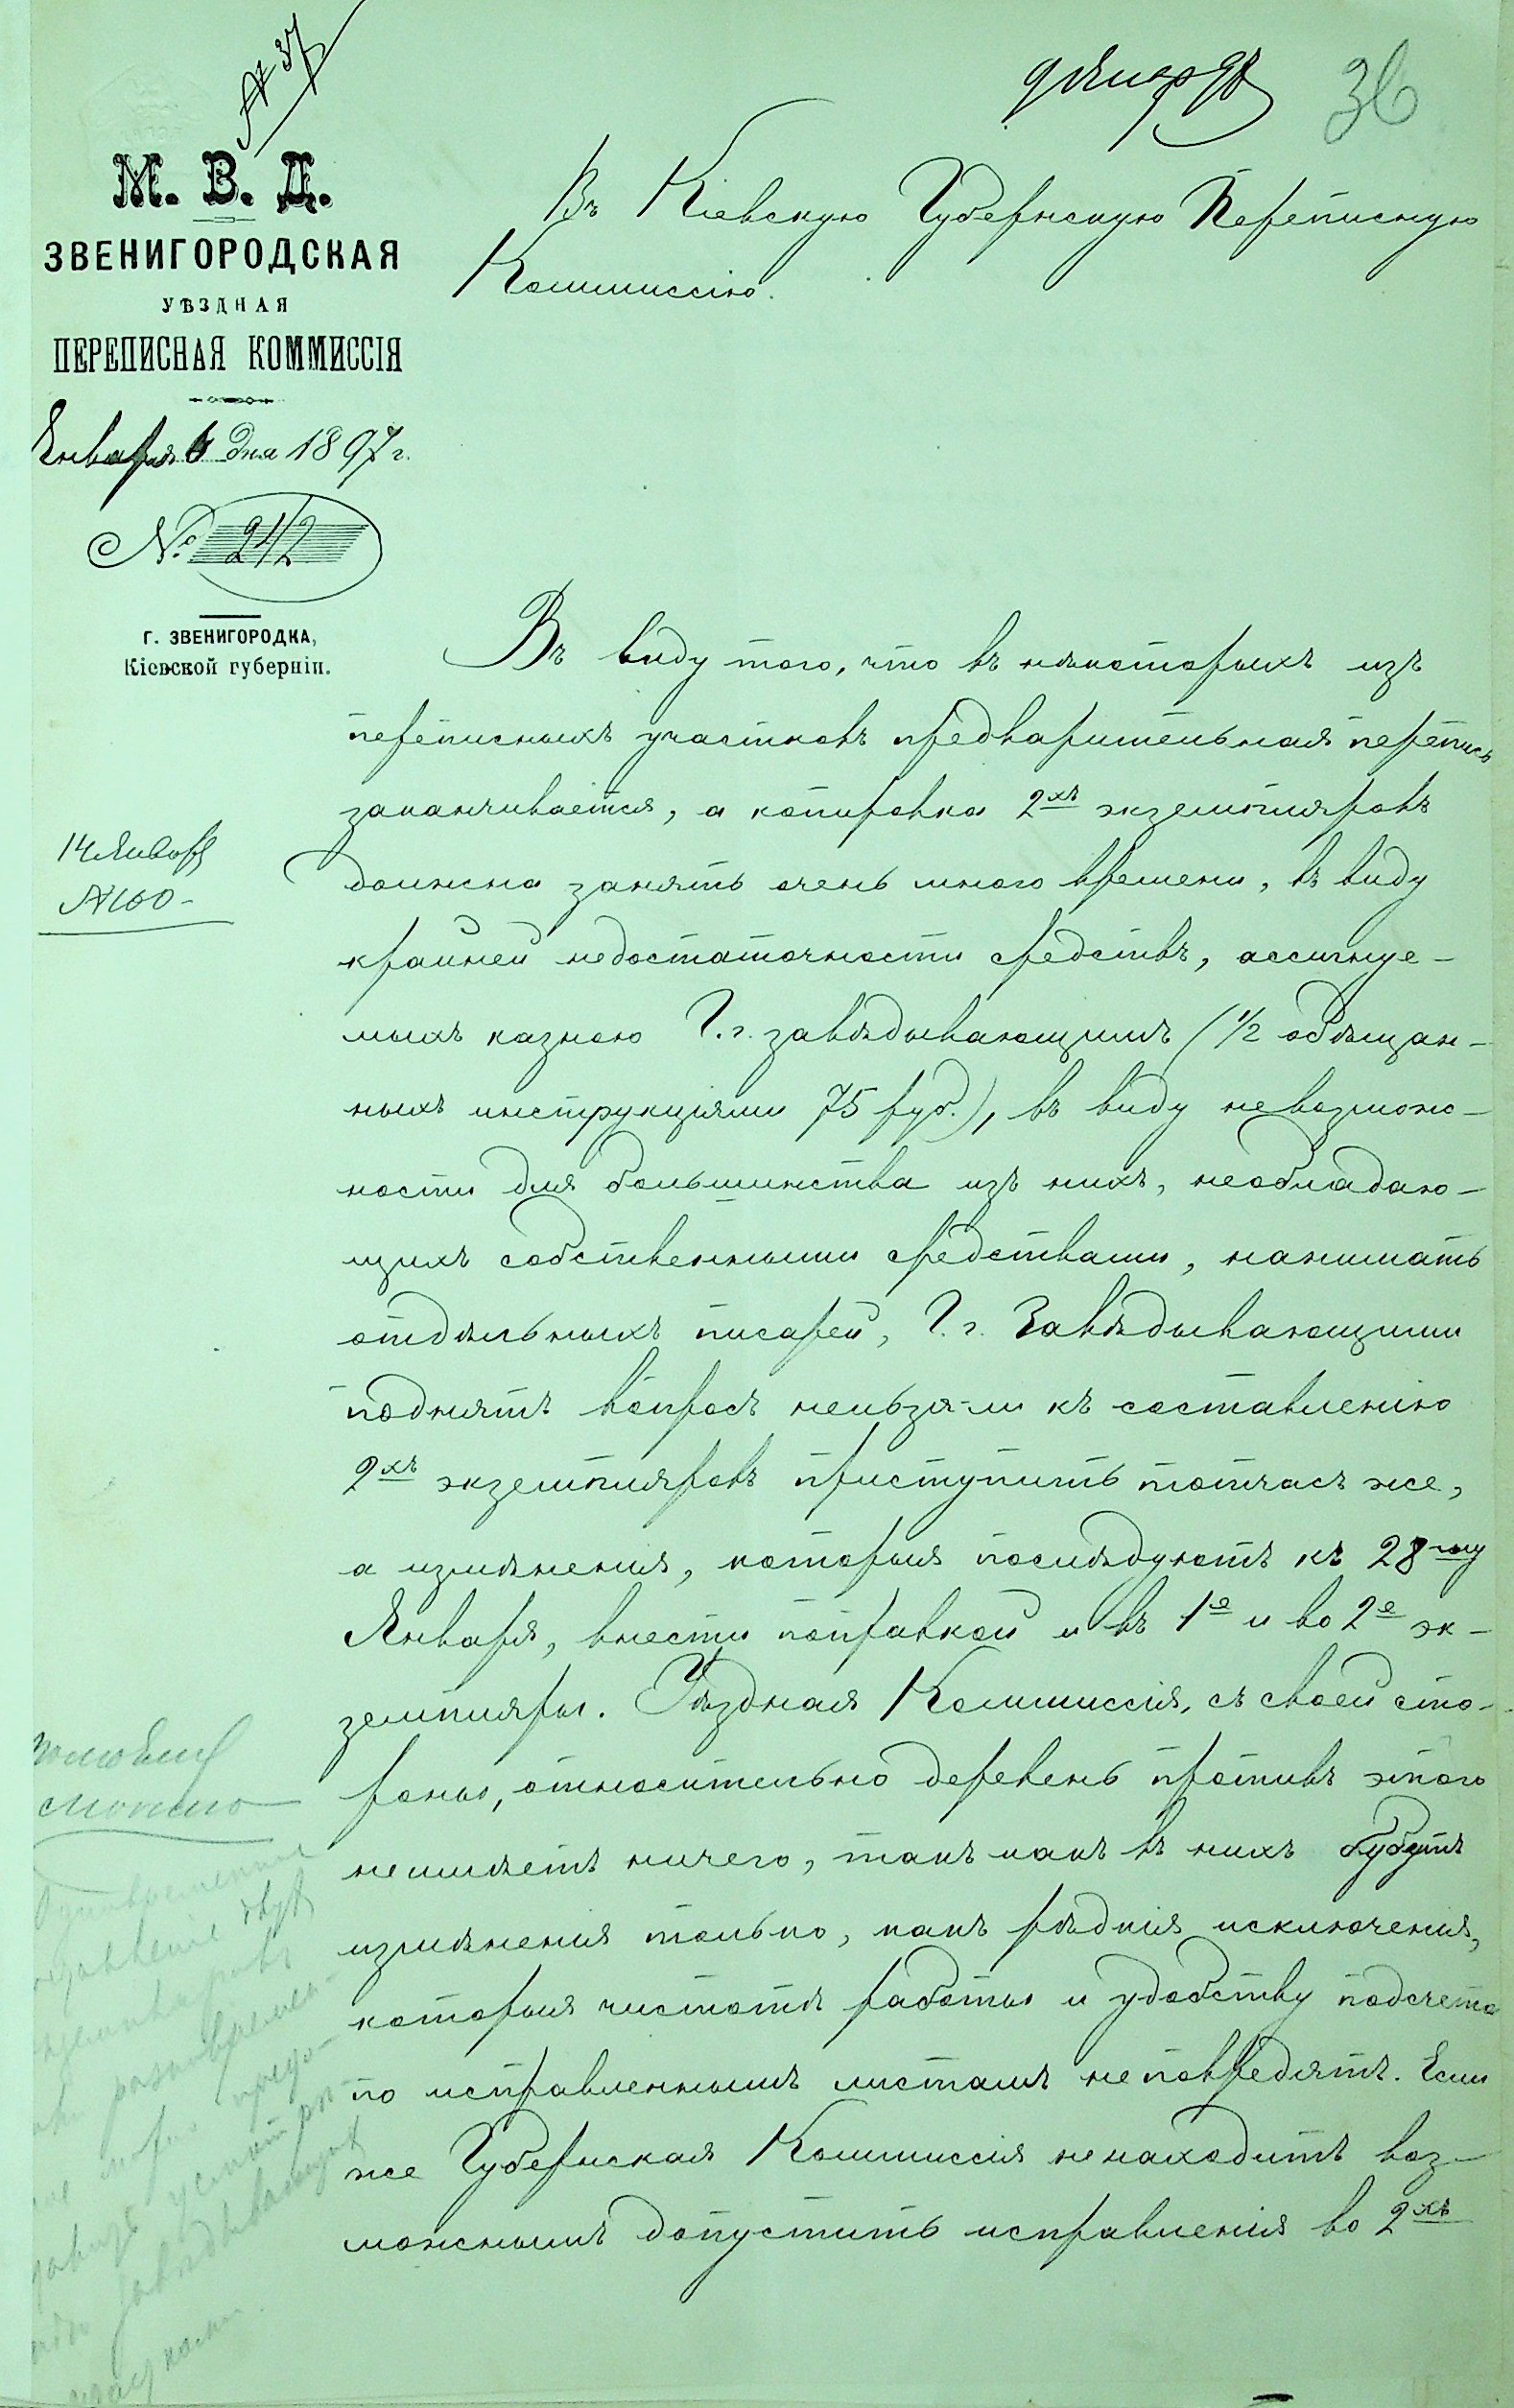 № 37
9 января 97
36
М. В. Д.
ЗВЕНИГОРОДСКАЯ
УѢЗДНАЯ
ПЕРЕПИСНАЯ КОММИССІЯ
Января 6 дня 1897 г.
№ 212
Г. ЗВЕНИГОРОДКА,
Кіевской губерніи.
Въ Кіевскую Губернскую Переписную
Коммиссію.
Въ виду того, что въ нѣкоторыхъ изъ
переписныхъ участковъ предварительная перепись
заканчивается, а копировка 2хъ экземпляровъ
должна занять очень много времени, въ виду
крайней недостаточности средствъ, ассигнуе-
мыхъ казною Г.г. завѣдывающимъ (1/2 обѣщан-
ныхъ инструкціями 75 руб.), въ виду невозмож-
ности для большинства изъ нихъ, необладаю-
щихъ собственными средствами, нанимать
отдѣльныхъ писарей, Г.г. Завѣдывающими
поднятъ вопросъ нельзя-ли къ составленію
2хъ экземпляровъ приступить тотчасъ же,
а измѣненія, которыя послѣдуютъ къ 28-му
Января, внести поправкой и въ 1е и во 2е эк-
земпляры. Уѣздная Коммиссія, съ своей сто-
роны, относительно деревень противъ этого
неимѣетъ ничего, такъ какъ въ нихъ будутъ
измѣненія только, какъ рѣдкія исключенія,
которыя чистотѣ работы и удобству подсчета
по исправленнымъ листамъ неповредятъ. Если
же Губернская Коммиссія ненаходитъ воз-
можнымъ допустить исправленія во 2хъ
14 Января
№ 160 -